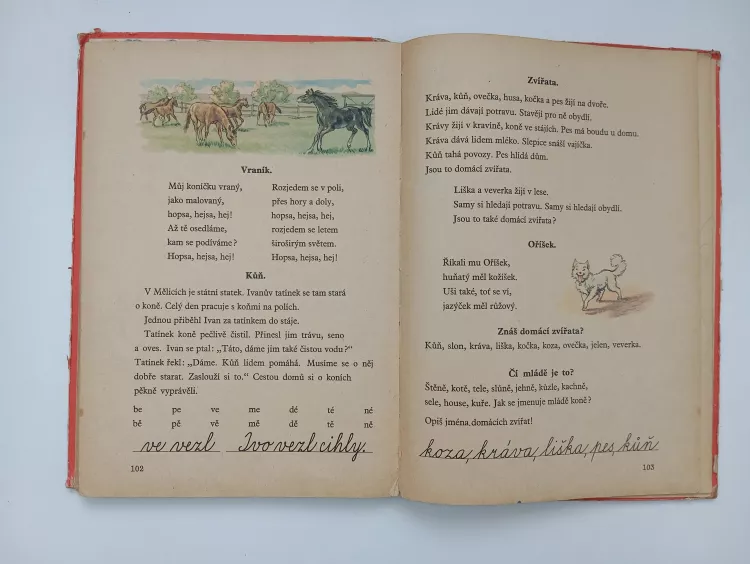 Vraník.
Můj koníčku vraný,
jako malovaný,
hopsa, hejsa, hej!
Až tě osedláme,
kam se podíváme?
Hopsa, hejsa, hej!
Rozjedem se v poli,
přes hory a doly,
hopsa, hejsa, hej,
rozjedem se letem
široširým světem.
Hopsa, hejsa, hej!
Kůň.
V Mělicích je státní statek. Ivanův tatínek se tam stará
o koně. Celý den pracuje s koňmi na polích.
Jednou přiběhl Ivan za tatínkem do stáje.
Tatínek koně pečlivě čistil. Přinesl jim trávu, seno
a oves. Ivan se ptal: „Táto, dáme jim také čistou vodu?“
Tatínek řekl: „Dáme. Kůň lidem pomáhá. Musíme se o něj
dobře starat. Zaslouží si to.“ Cestou domů si o koních
pěkně vyprávěli.
be pe ve me dé té né
bě pě vě mě dě tě ně
ve vezl Ivo vezl cihly.
102
Zvířata.
Kráva, kůň, ovečka, husa, kočka a pes žijí na dvoře.
Lidé jim dávají potravu. Stavějí pro ně obydlí.
Krávy žijí v kravíně, koně ve stájích. Pes má boudu u domu.
Kráva dává lidem mléko. Slepice snáší vajíčka.
Kůň tahá povozy. Pes hlídá dům.
Jsou to domácí zvířata.
Liška a veverka žijí v lese.
Samy si hledají potravu. Samy si hledají obydlí.
Jsou to také domácí zvířata?
Oříšek.
Říkali mu Oříšek,
huňatý měl kožíšek.
Uši také, toť se ví,
jazýček měl růžový.
Znáš domácí zvířata?
Kůň, slon, kráva, liška, kočka, koza, ovečka, jelen, veverka.
Čí mládě je to?
Štěně, kotě, tele, slůně, jehně, kůzle, kachně,
sele, house, kuře. Jak se jmenuje mládě koně?
Opiš jména domácích zvířat!
koza, kráva, liška, pes, kůň
103